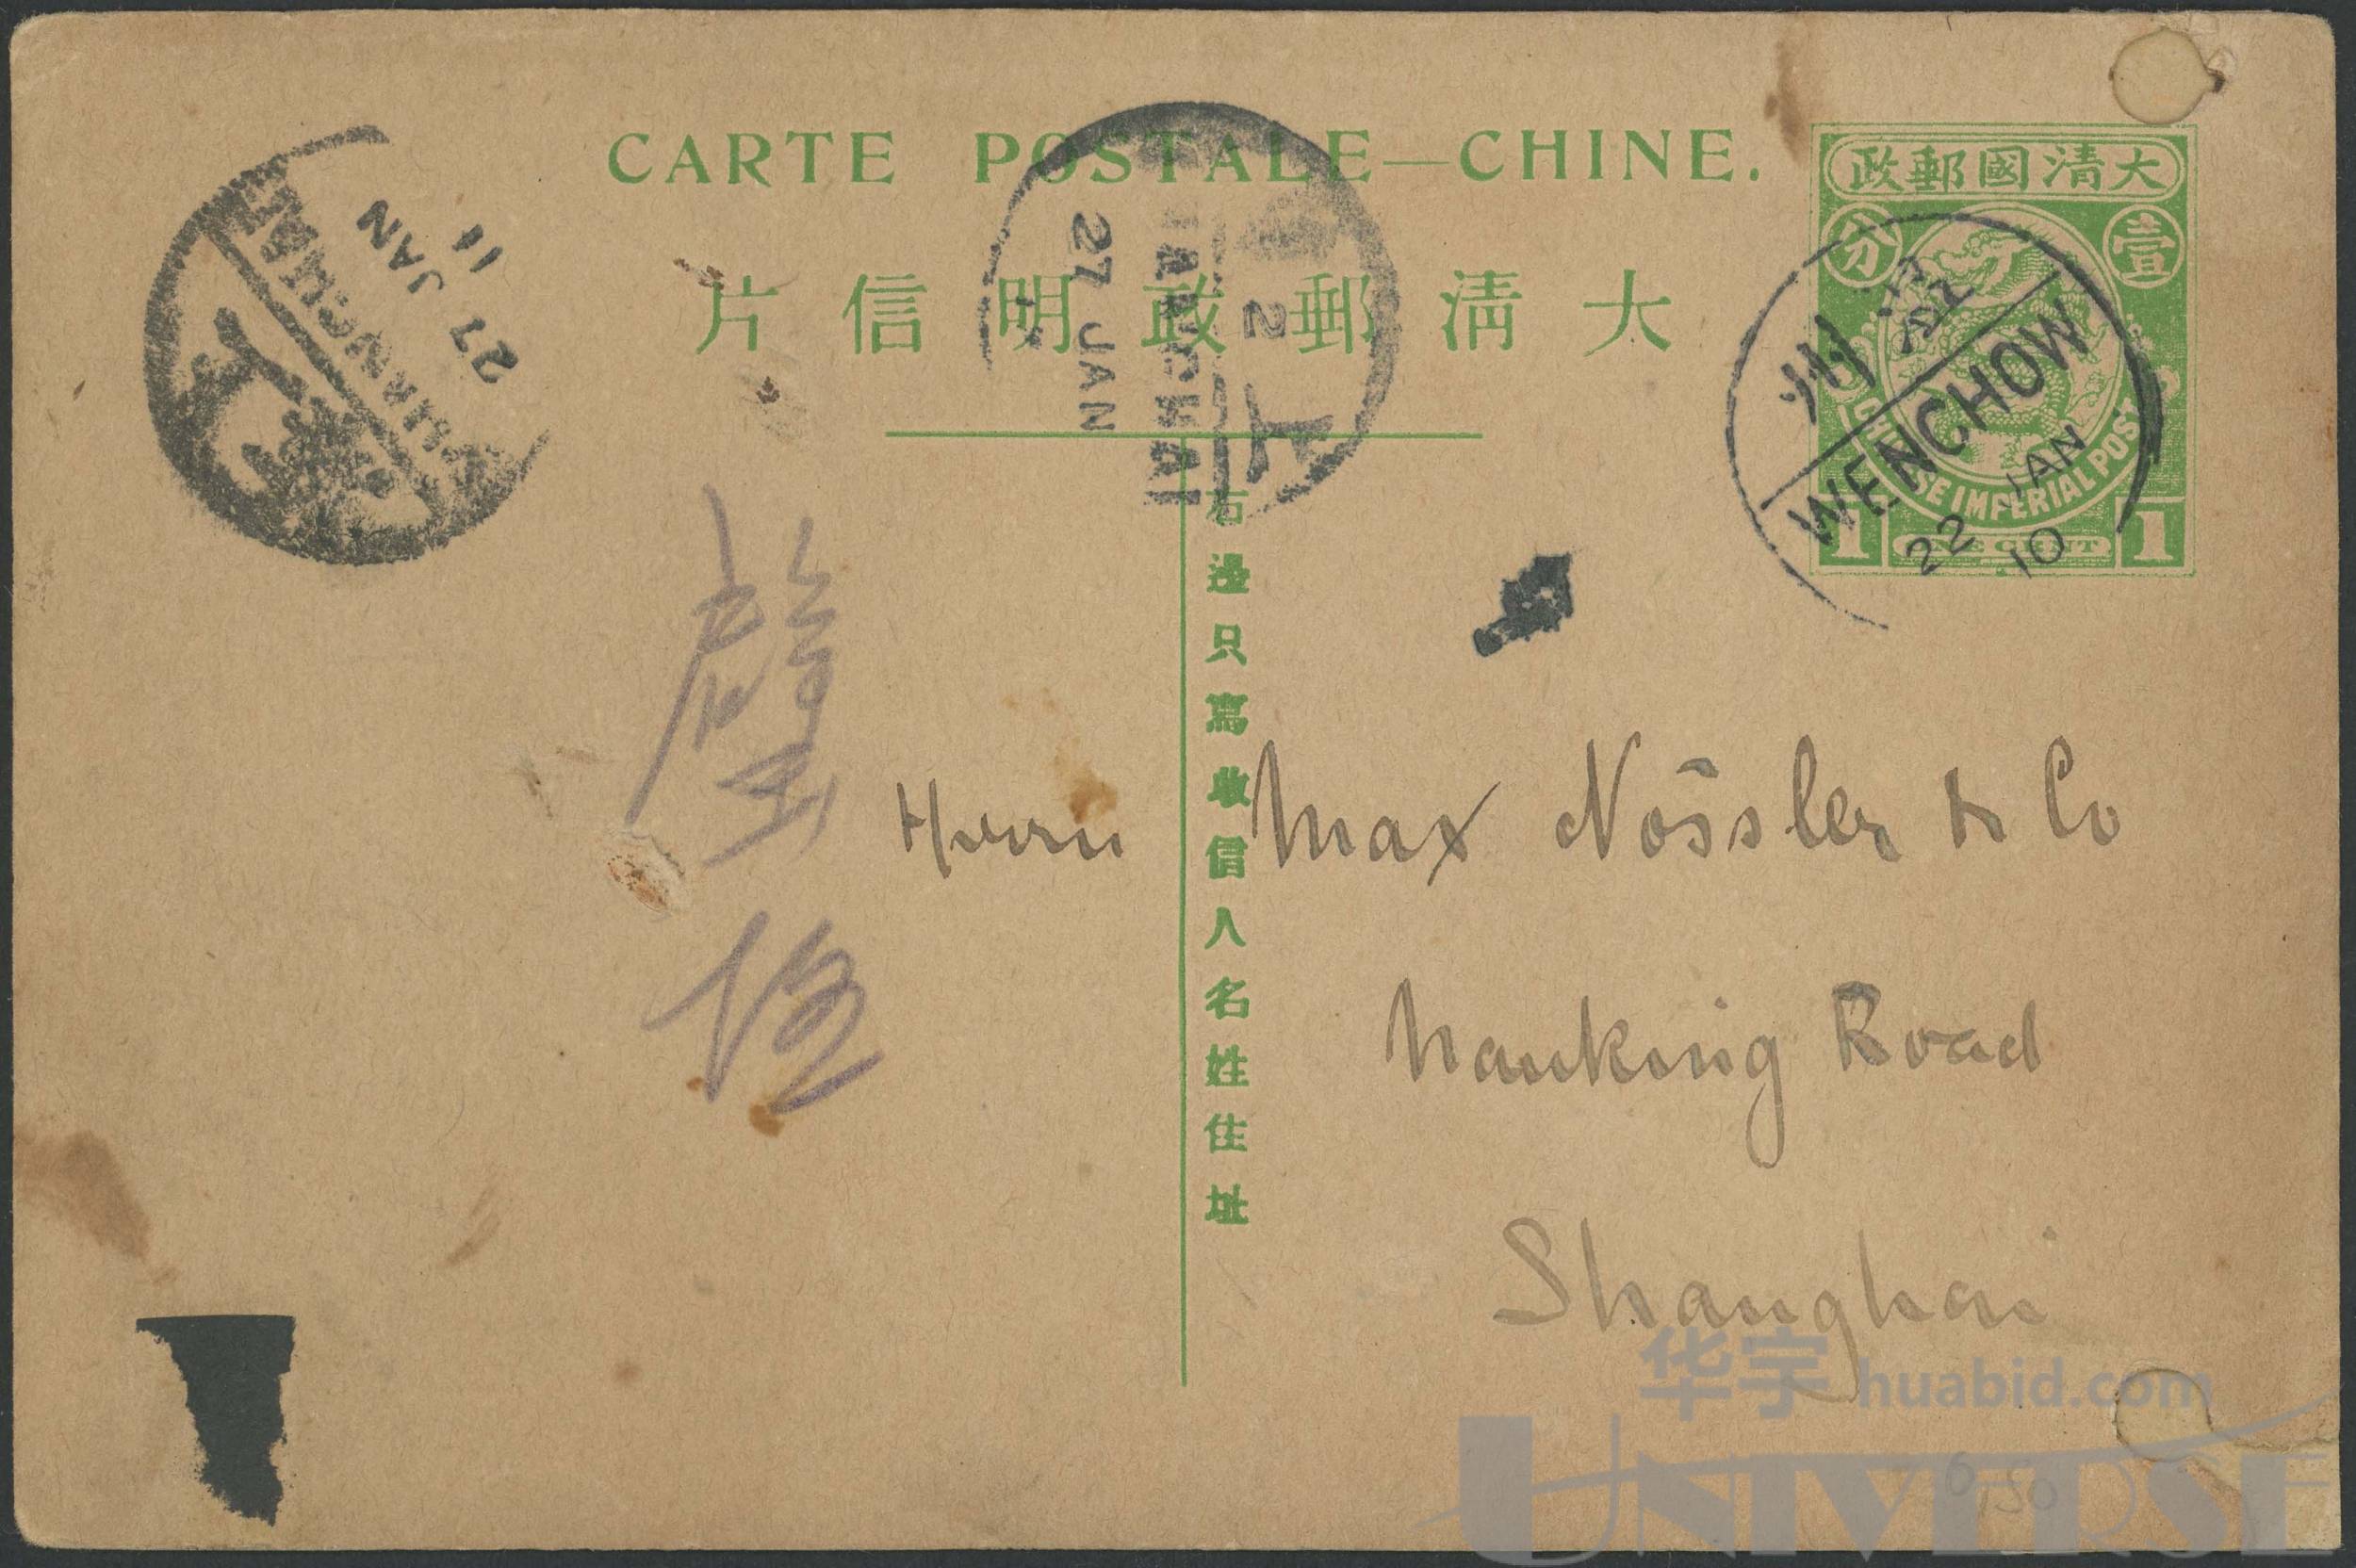 CARTE POSTALE—CHINE.
大清郵政明信片
大清國郵政
壹
分
CHINESE IMPERIAL POST
1
ONE CENT
1
州
WENCHOW
22 JAN 10
上
SHANGHAI
27 JAN 11
上
2
SHANGHAI
27 JAN
右邊只寫收信人名姓住址
Herrn Max Nössler & Co
Nanking Road
Shanghai
华宇 huabid.com
UNIVERSE